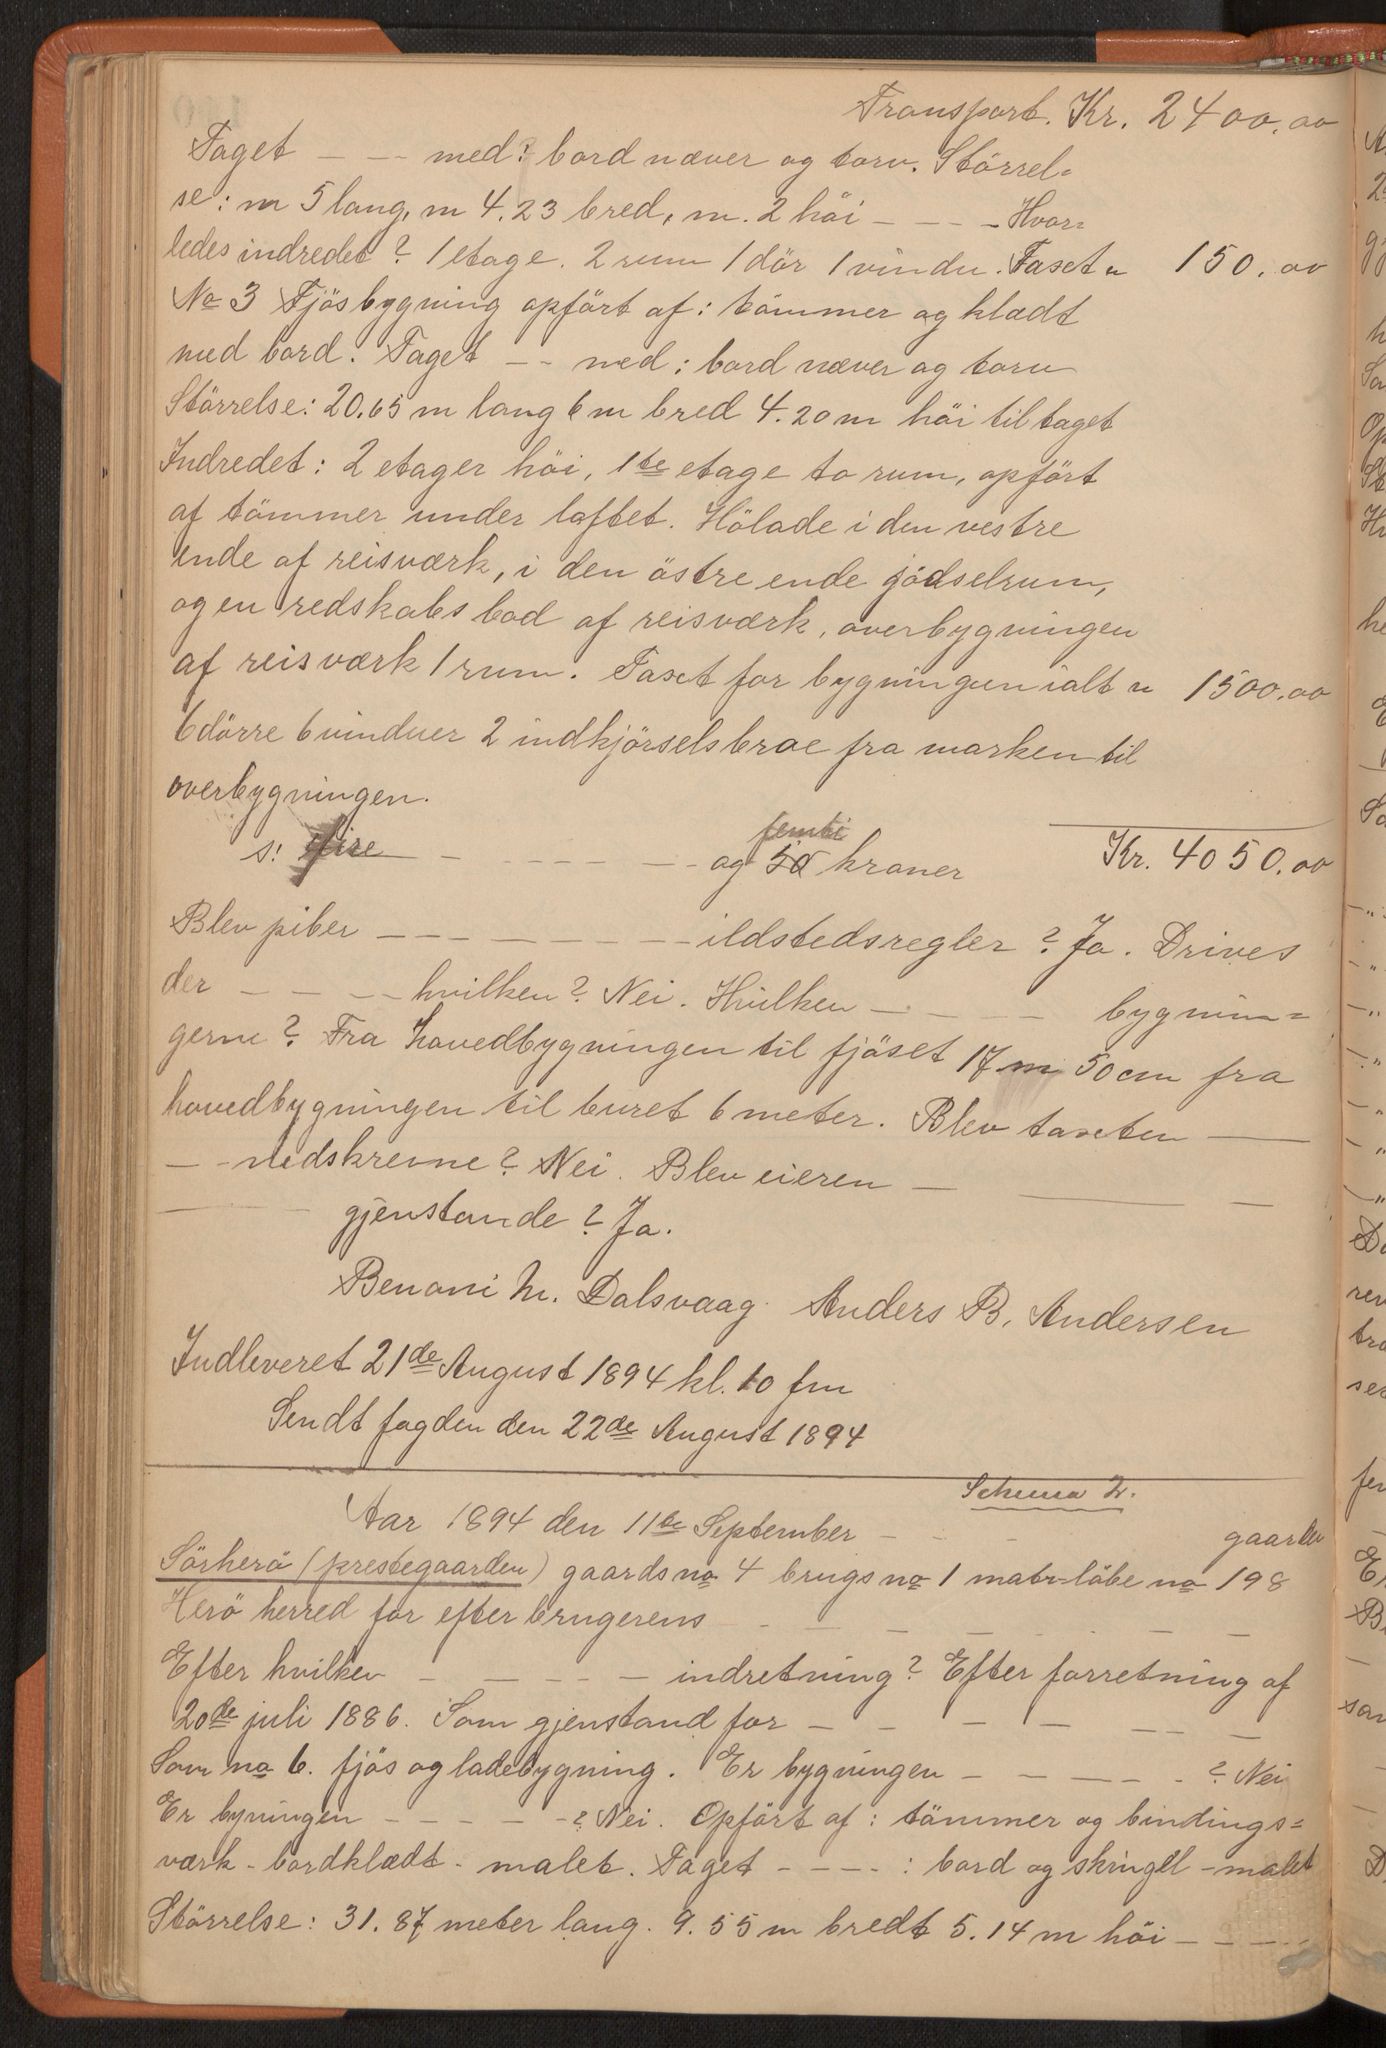 Transport. Kr. 2400.00
Taget - - - med: bord næver og torv. Större-
se: m 5 lang, m 4.23 bred, m. 2 höi - - - - Hvor=
ledes indredet? 1 etage. 2 rum 1 dör 1 vindu. Taxst " 150.00
No 3 Fjösbygning opfört af: tömmer og klædt
med bord. Taget - - med: bord næver og torv
Störrelse: 20.65 m lang 6 m bred 4.20 m höi til taget
Indredet: 2 etager höi, 1te etage to rum, opfört
af tömmer under loftet. Hölade i den vestre
ende af reisværk, i den östre ende gjödselrum,
og en redskabsbod af reisværk, overbygningen
af reisværk 1 rum. Taxst for bygningen ialt " 1500.00
6 dörre 6 vinduer 2 indkjörselsbroe fra marken til
overbygningen.
femti
s! fire - - - - - - - og 50 kroner Kr. 4050.00
Blev piber - - - - - - - - ildstedsregler? Ja. Drives
der - - - - hvilken? Nei. Hvilken - - - - - bygnin=
gerne? Fra hovedbygningen til fjöset 17 m 50 cm fra
hovedbygningen til buret 6 meter. Blev taxsten -
- - nedskrevne? Nei. Blev eieren - - -
- gjenstande? Ja.
Benoni M. Dalsvaag. Anders B. Andersen
Indleveret 21de August 1894 kl. 10 fm
Sendt fogden den 22de August 1894
Schema 2.
Aar 1894 den 11te September - - - gaarden
Sörherö (prestegaarden) gaards no 4 brugs no 1 matr-löbe no 198
Herö herred for efter brugerens - - - - - - - -
Efter hvilken - - - - - indretning? Efter forretning af
20de juli 1886. Som gjenstand for - - - - - - -
Som no 6. fjös og ladebygning. Er bygningen - - - - - - ? Nei
Er byningen - - - - - -? Nei. Opfört af: tömmer og bindings=
værk - bordklædt - malet. Taget - - - - : bord og skingel - malet
Störrelse: 31.87 meter lang. 9.55 m bredt 5.14 m höi - - - - -